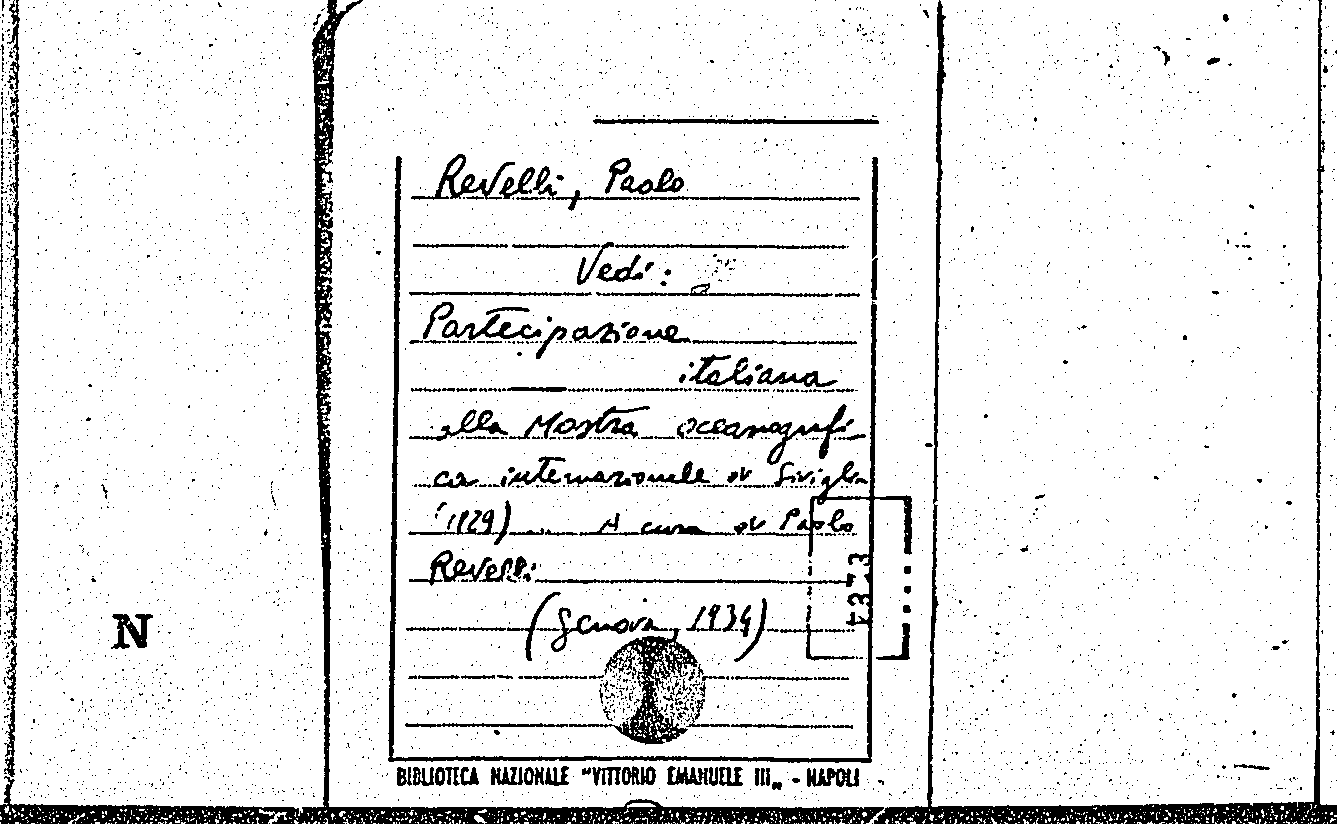 Revelli, Paolo
Vedi:
Partecipazione
italiana
alla Mostra oceanografi
ca internazionale di Siviglia
(1929) ... A cura di Paolo
Revelli
(Genova, 1934)
4373
N
BIBLIOTECA NAZIONALE "VITTORIO EMANUELE III„ - NAPOLI